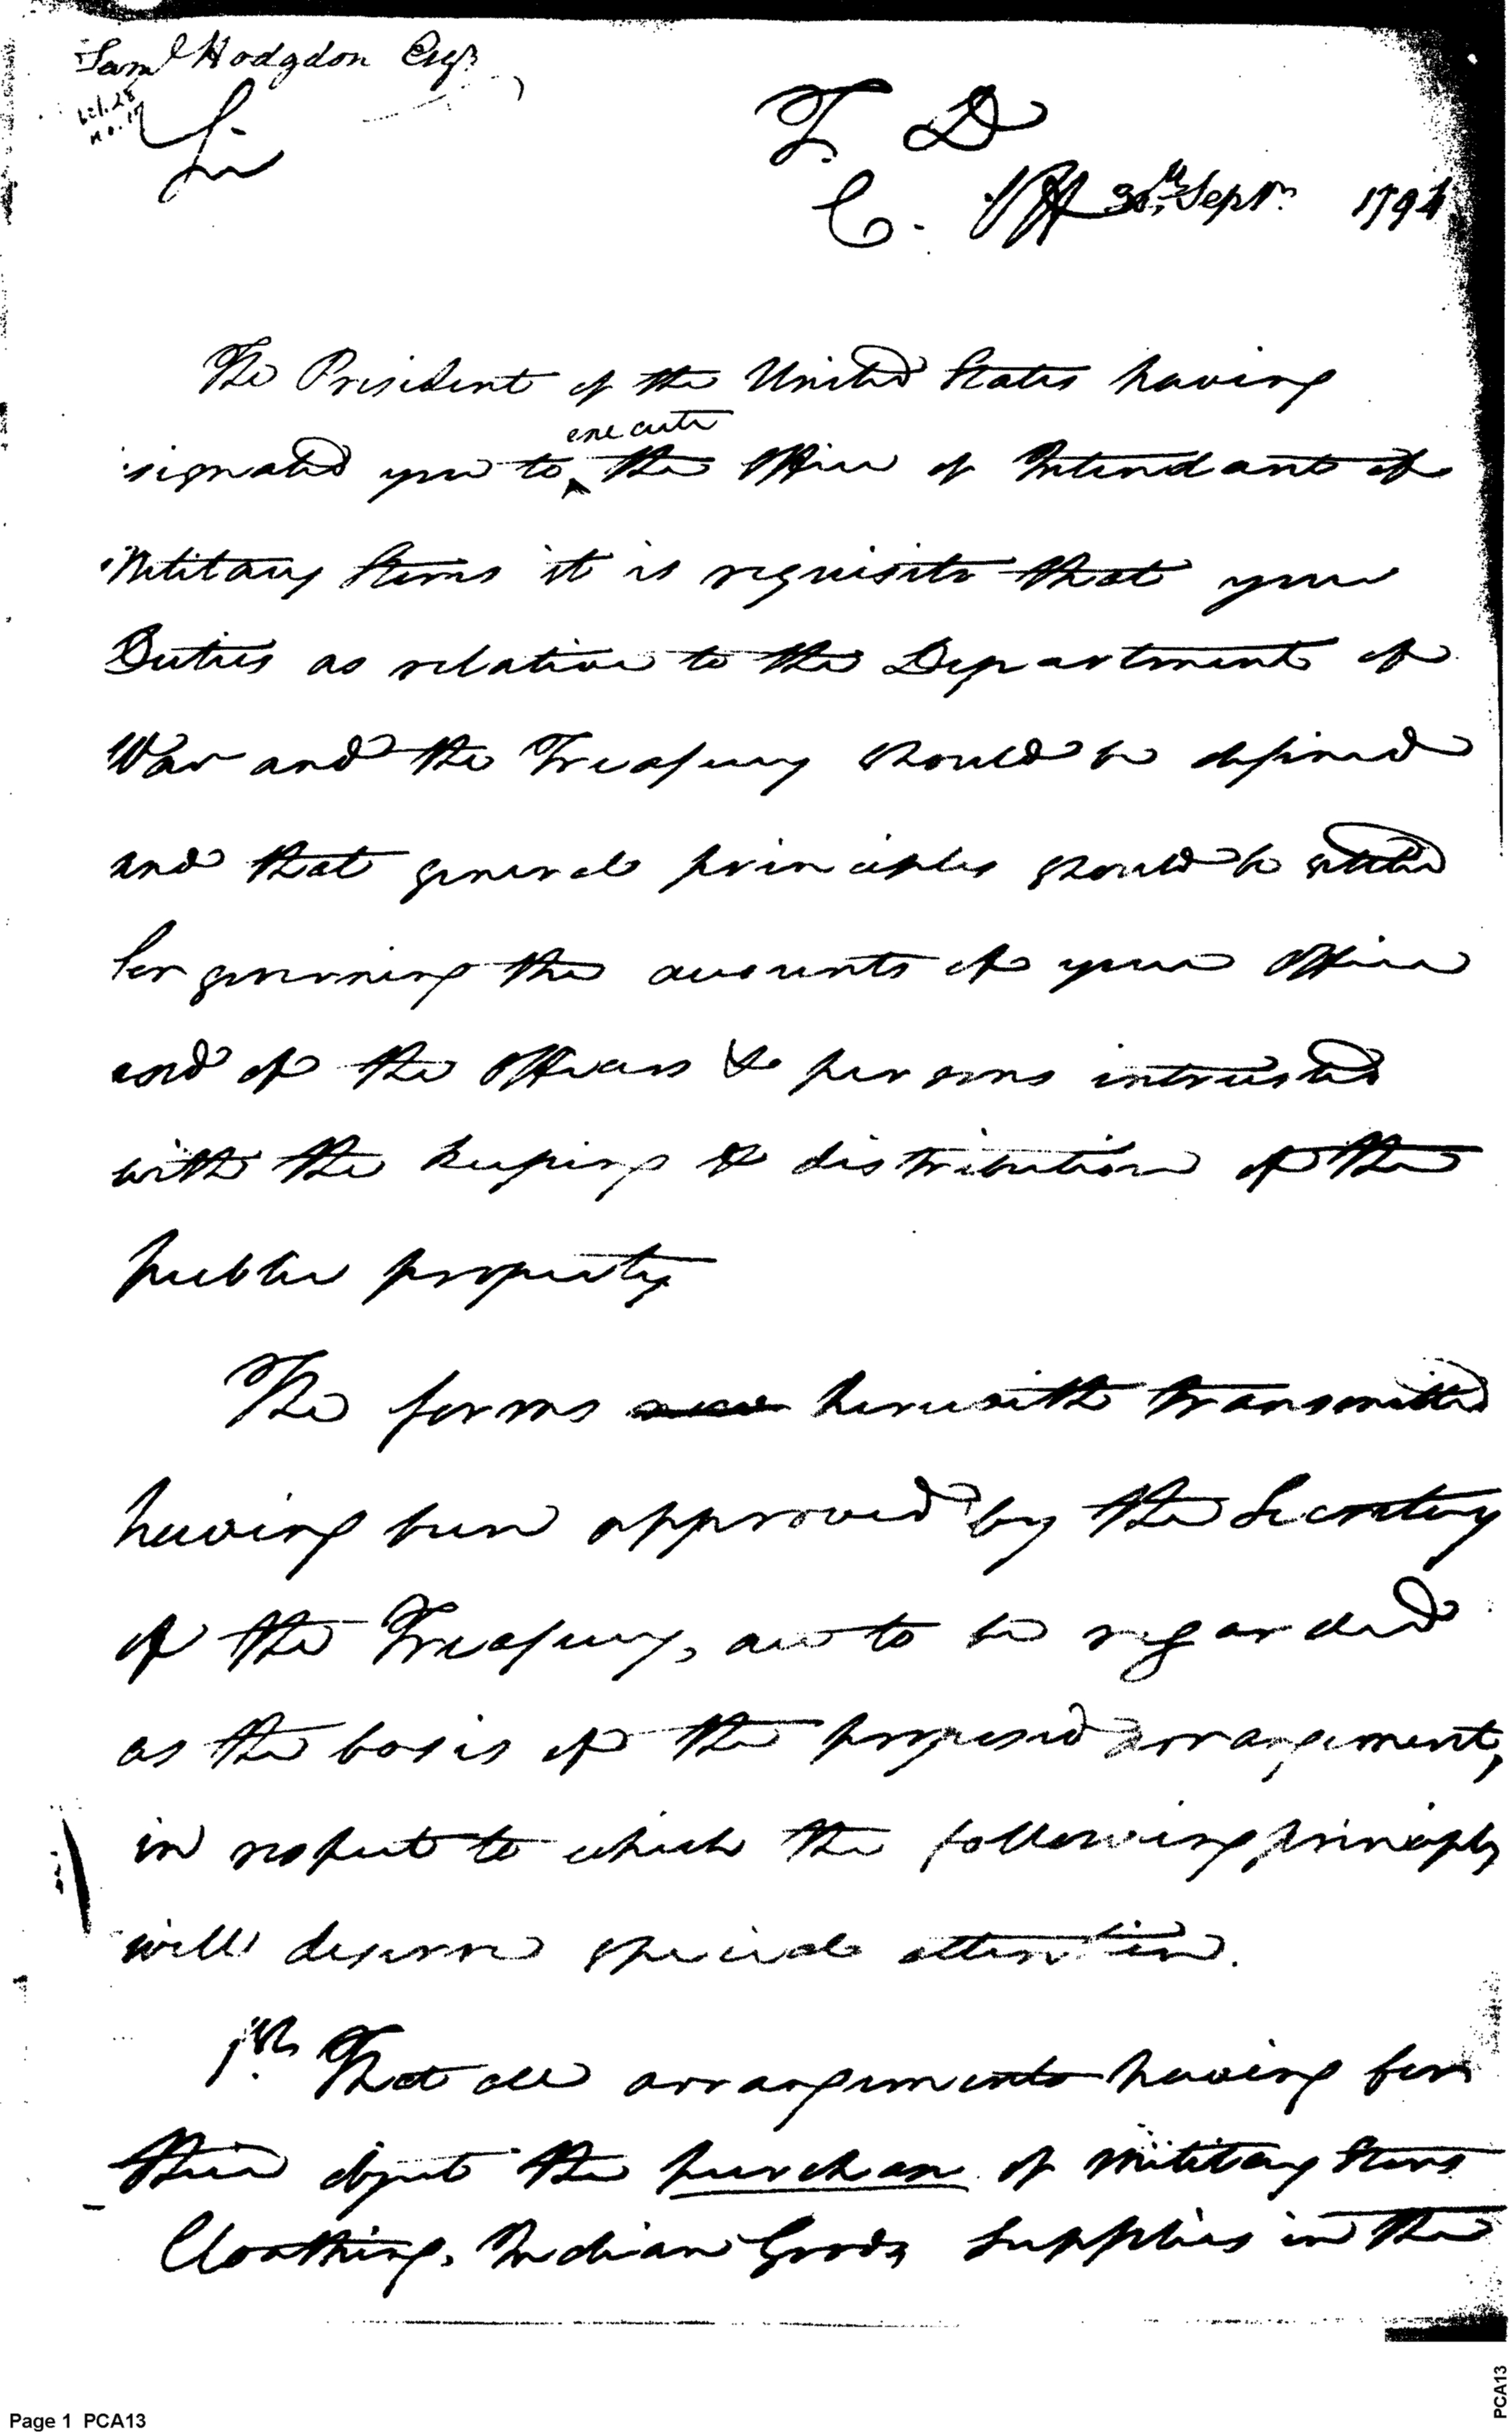 Saml Hodgdon Esqr
Sir
T. D
C. Off 30th Septr 1794
The President of the United States having
signated you to execute the Office of Intendant of
Military Stores it is requisite that your
Duties as relative to the Department of
War and the Treasury should be defined
and that general principles should be settled
for governing the accounts of your Office
and of the Officers & persons intrusted
with the keeping & distribution of the
public property
The forms herewith transmitted
having been approved by the Secretary
of the Treasury, are to be regarded
as the basis of the proposed arrangement,
in respect to which the following principles
will deserve special attention.
1st. That all arrangements having for
their object the purchase of Military Stores
Cloathing, Indian Goods, Supplies in the
Page 1 PCA13
PCA13